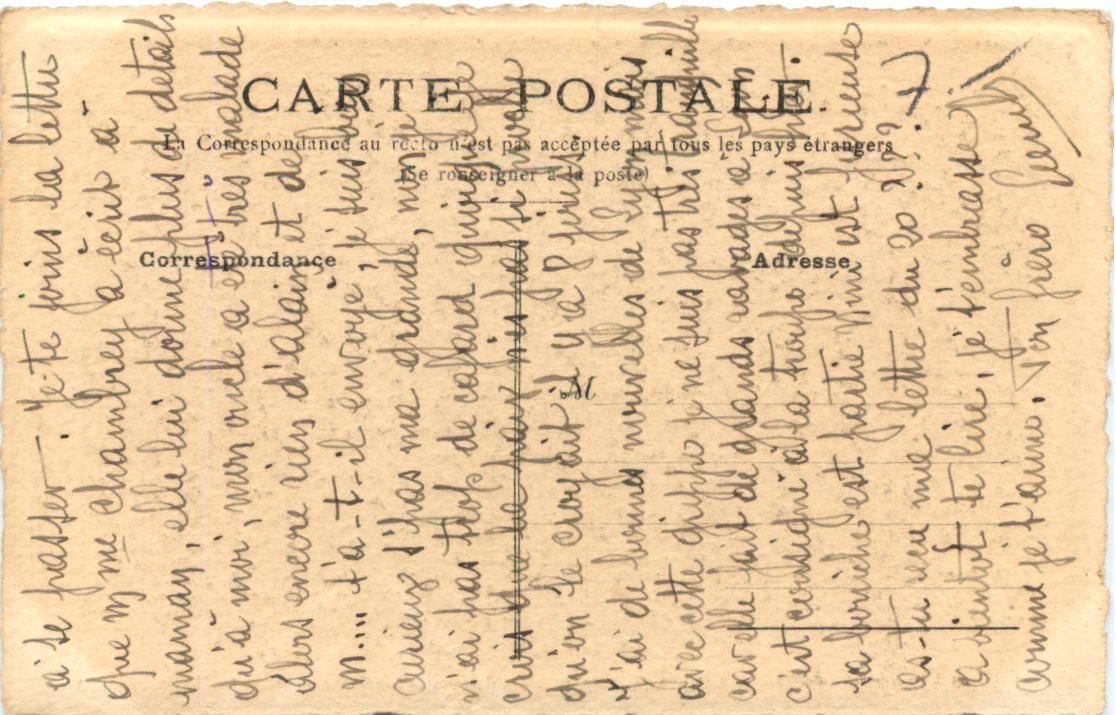 CARTE POSTALE
La Correspondance au recto n'est pas acceptée par tous les pays étrangers
(Se renseigner à la poste)
Correspondance
Adresse
M
7
à te passer - Je te joins la lettre
que Mme Chambrey a écrit à
maman, elle lui donne plus de détails
qu'à moi, mon oncle a été très malade
alors encore rien d'alain et de
M.... t'a-t-il envoyé, je suis bien
curieux n'has ma grande, moi je
n'ai pas trop de cafard quoique je
crois que la paix n'est pas si proche
qu'on le croyait il y a 8 jours
j'ai de bonnes nouvelles de Lyon mais
avec cette grippe je ne suis pas très tranquille
car elle fait de grands ravages à
c'est consigné à la troupe depuis huit j.
la bouiche est partie Nini est furieuse
as-tu reu me lettre du 20 ???
a bientot te lire, je t'embrasse
comme je t'aime. Ton frero